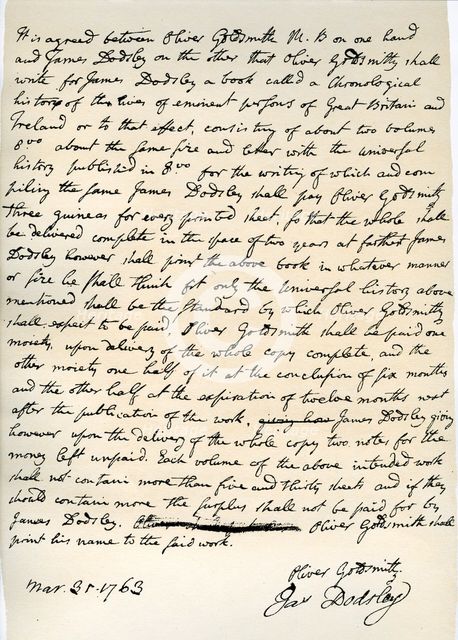 It is agreed between Oliver Goldsmith M. B on one hand
and James Dodsley on the other that Oliver Goldsmith shall
write for James Dodsley a book called a Chronological
history of the lives of eminent persons of Great Britain and
Ireland or to that effect, consisting of about two volumes
8vo about the same size and letter with the universal
history published in 8vo for the writing of which and com
piling the same James Dodsley shall pay Oliver Goldsmith
three guineas for every printed sheet, so that the whole shall
be delivered complete in the space of two years at farthest James
Dodsley however shall print the above book in whatever manner
or size he shall think fit only the Universal history above
mentioned shall be the standard by which Oliver Goldsmith
shall expect to be paid. Oliver Goldsmith shall be paid one
moiety, upon delivery of the whole copy complete, and the
other moiety one half of it at the conclusion of six months
and the other half at the expiration of twelve months next
after the publication of the work, James Dodsley giving
however upon the delivery of the whole copy two notes for the
money left unpaid. Each volume of the above intended work
shall not contain more than five and thirty sheets and if they
should contain more the surplus shall not be paid for by
James Dodsley. Oliver Goldsmith shall
print his name to the said work.
Oliver Goldsmith
Mar. 31. 1763
Jas Dodsley